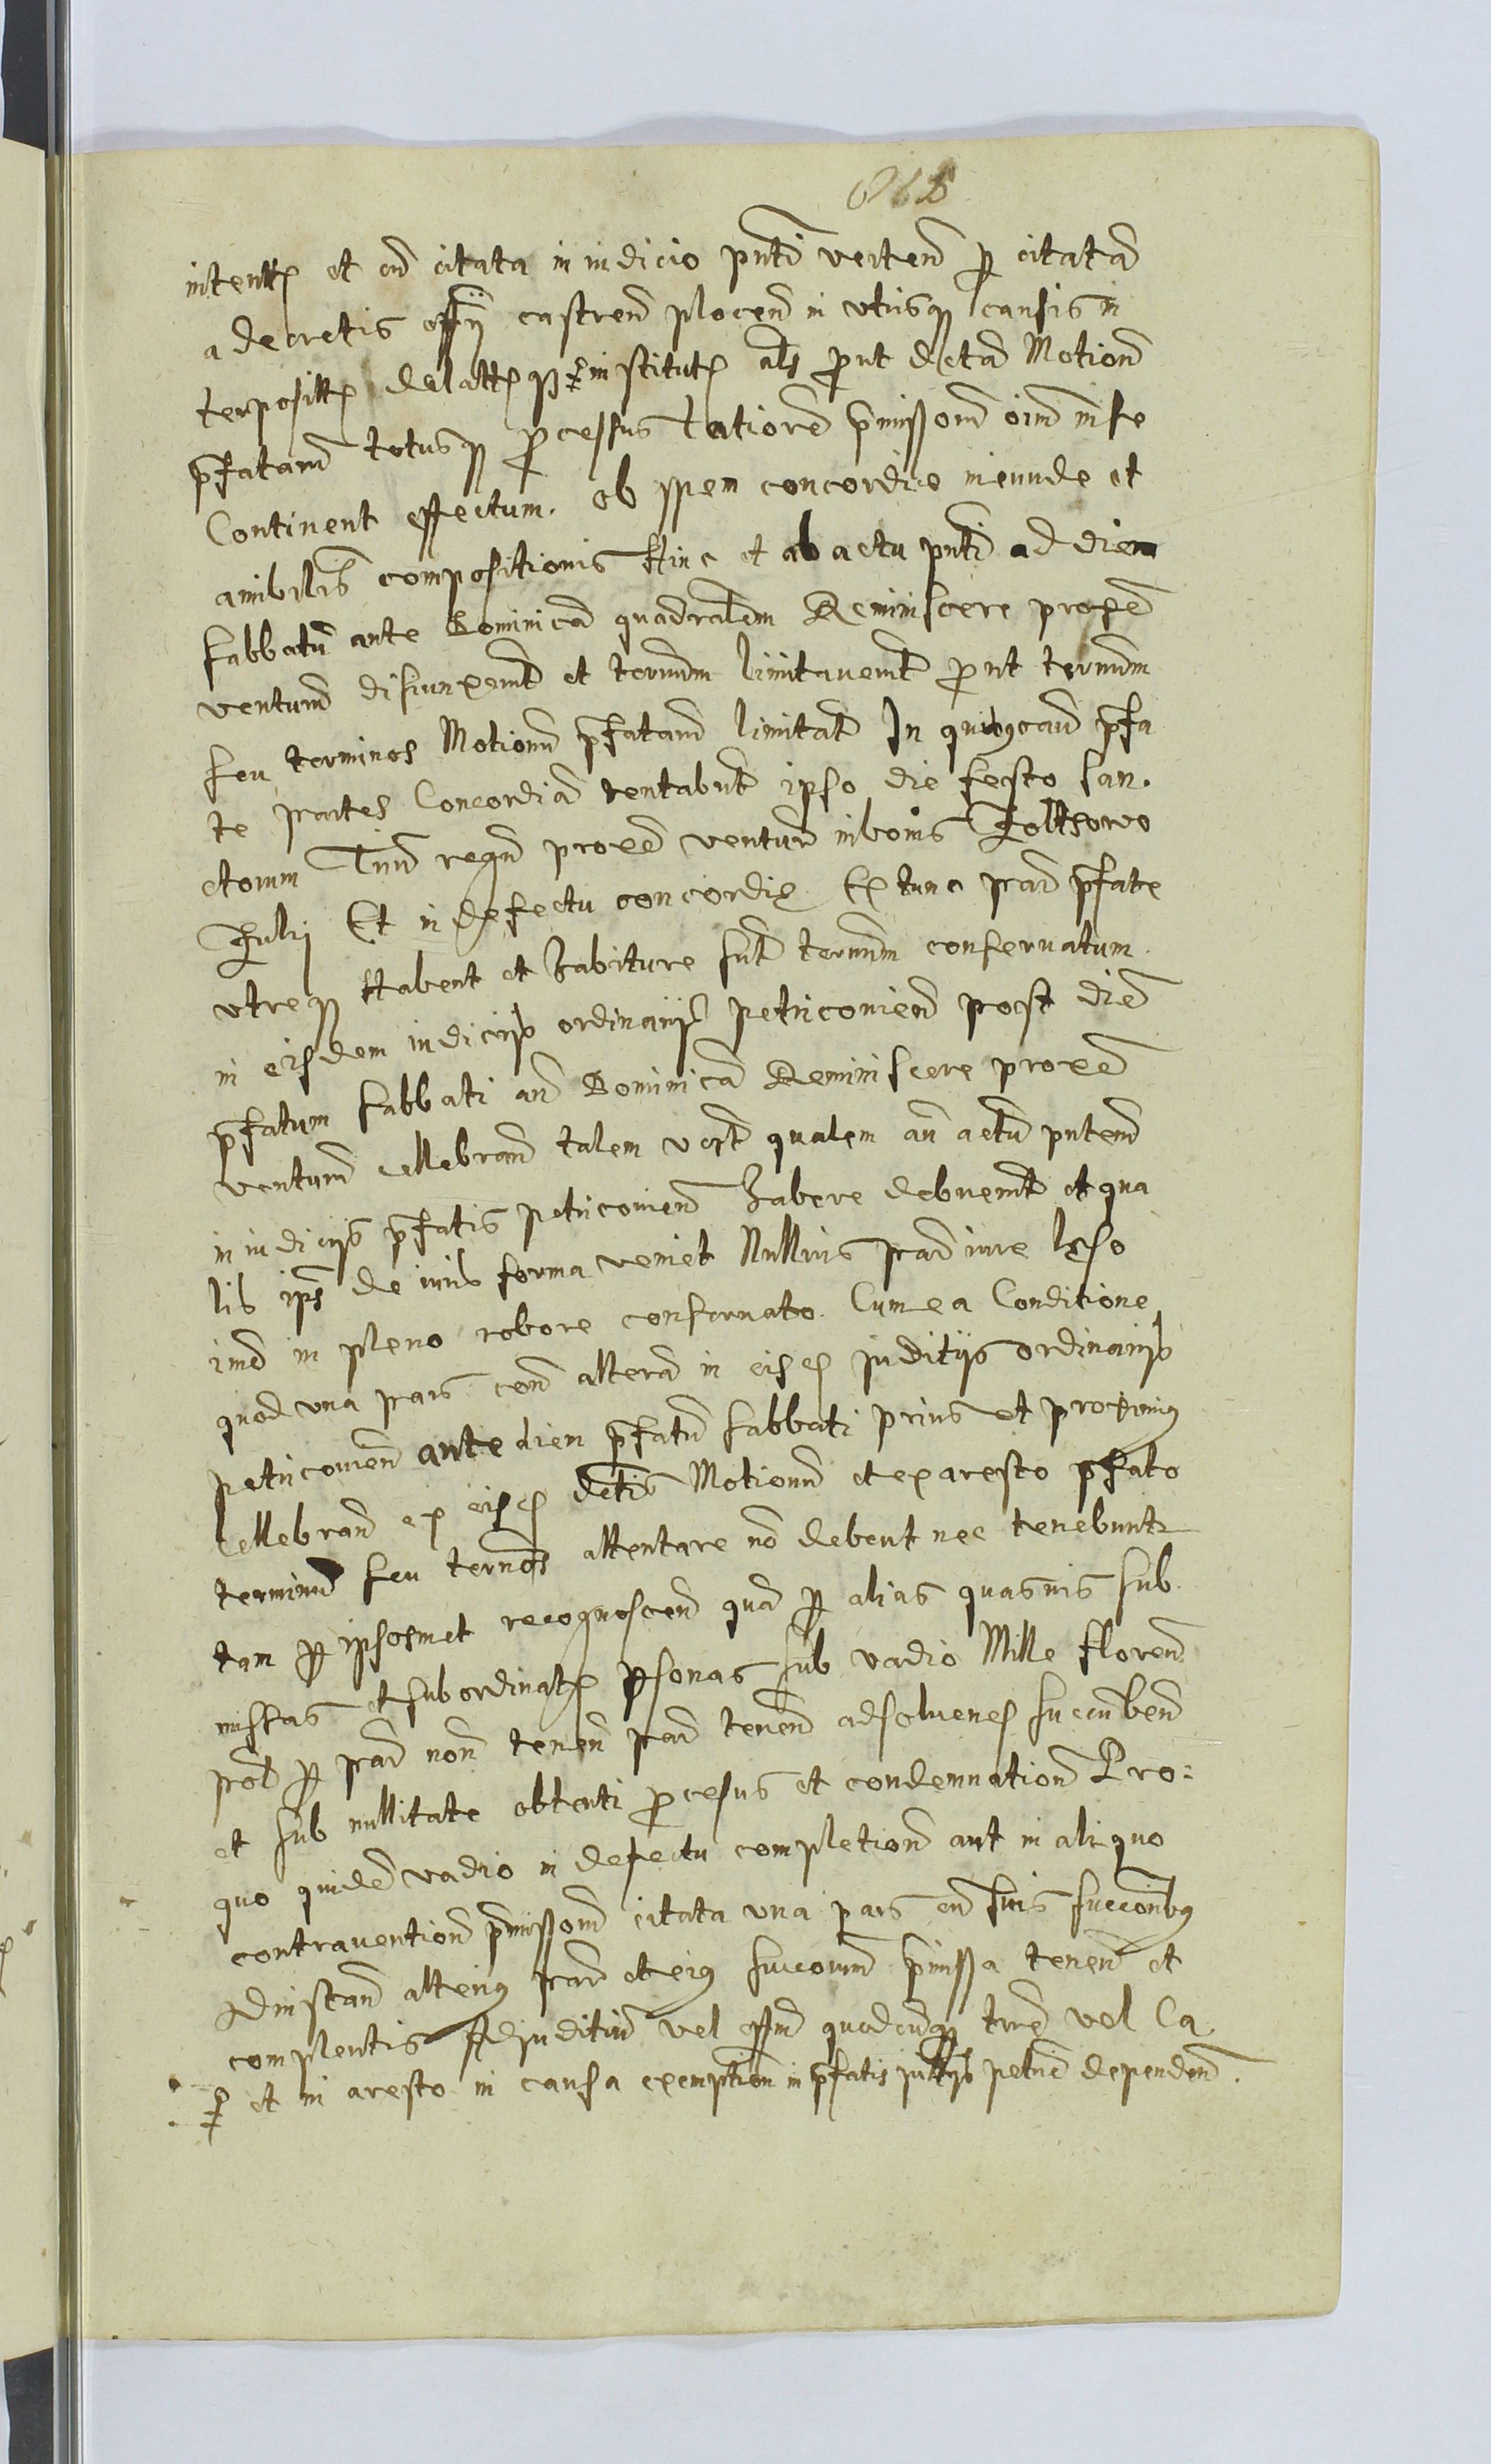 intentt et cum citata in iudicio pnti verten p citatam
a decretis offii castren plocen in vtrisq causis in
terposittt delattt q institut als prout dictam Motionem
pfatam totusq processus tatiorem pmissorum oim in se
Continent effectum. ob spem concordie ineunde et
amibilis compositionis Hinc et ab actu pnti ad diem
sabbatu ante Dominica quadralem Reminiscere proxe
venturu disiunxerunt et termnm limitauerunt prout termnm
seu terminos Motionu pfatam limitat In quibuscau pfa
te partes Concordia tentabunt ipso die festo San.
ctorum Trium regu proxe ventur in bonis Zolthowo
Et in defectu concordie Ex tunc par pfate
vtreq Habent et Habiture sunt termnm conseruatum
in eisdem iudicijs ordinarijs petricouien post diem
pfatum sabbati an Dominica Reminiscere proxe
venturu cellebran talem vert qualem an actu pntem
in iudicijs pfatis petricouien Habere debuerunt et qua
lis ips de iuris forma veniet Nullius par iure lęso
imo in pleno robore conseruato. Cum ea Conditione
quod vna pars con altera in eisd juditijs ordinarijs
petricouien ante diem pfatu sabbati prius et proximius
Cellebran ex eisd dctis Motionu et ex aresto pfato
terminu seu termnos attentare no debent nec tenebuntr
tam p ipsosmet recognoscen qua p alias quasuis sub
missas et subordinat psonas sub vadio Mille floren
pol p par non tenen par tenen adsoluend succumben
et sub nullitate obtenti processus et condemnation Pro:
quo quidem vadio in defectu completion aut in aliquo
contrauention pmissorum citata vna pars cum suis succoribus
Ad instan alterius par et eius succorum pmissa tenen et
complentis Ad juditiu vel offm quodcunq trre vel Ca
et in aresto in causa exemption in pfatis juttijs petric dependen.